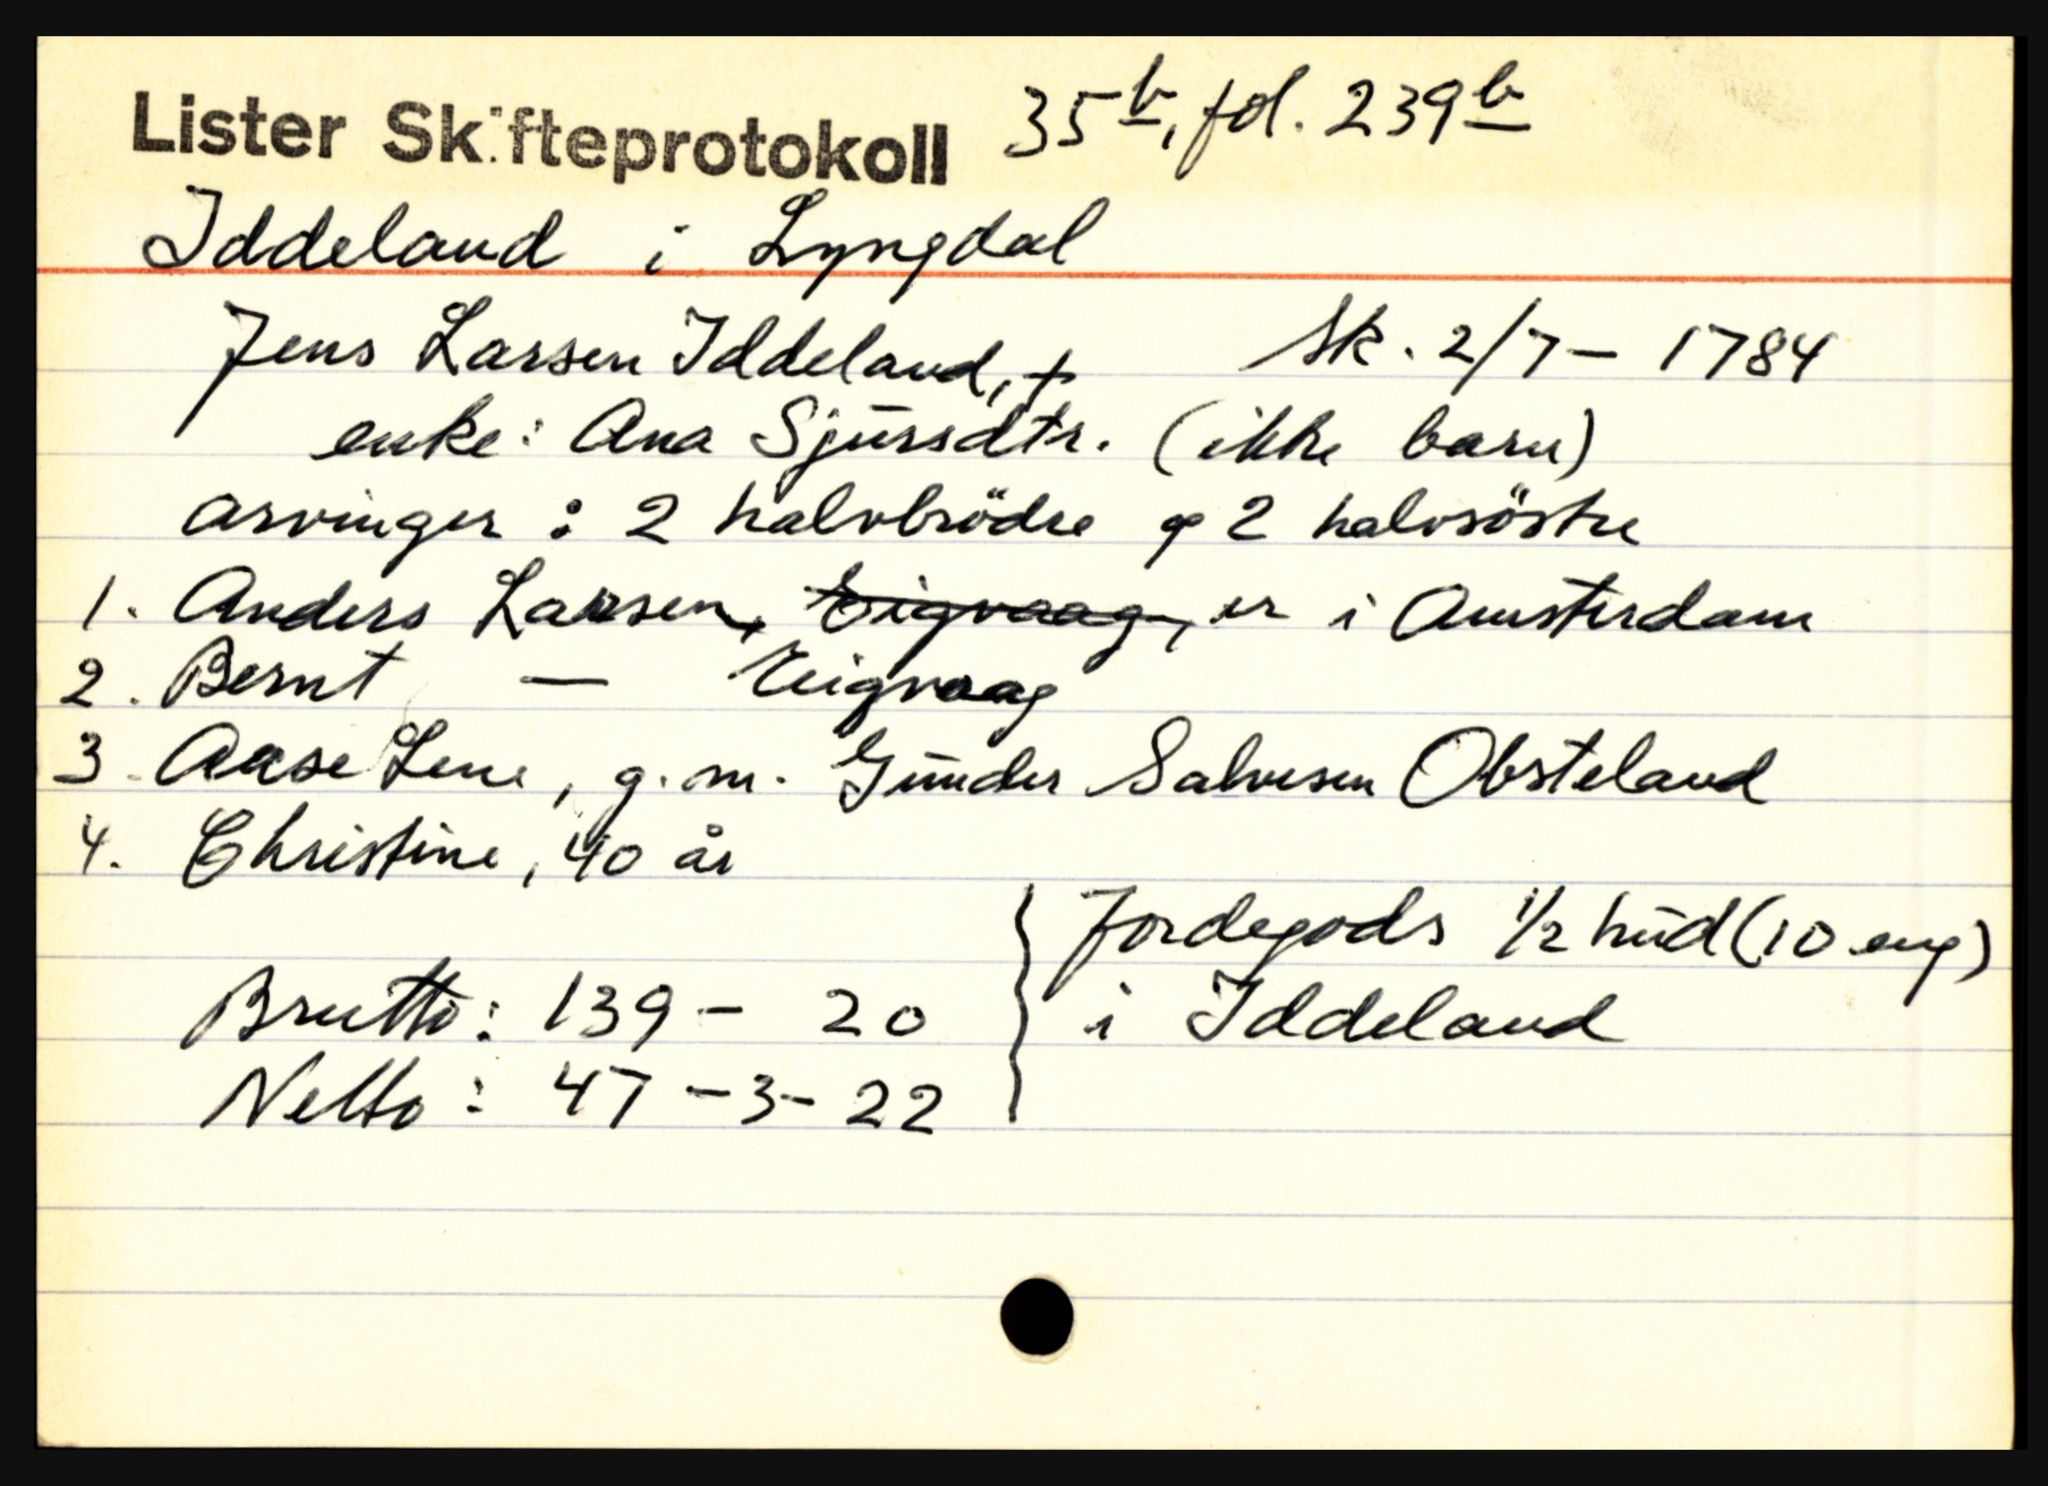 Lister Skifteprotokoll 35b, fol. 239b
Iddeland i Lyngdal
Jens Larsen Iddeland, + Sk. 2/7 - 1784
enke: Ana Sjursdtr. (ikke barn)
arvinger : 2 halvbrödre og 2 halvsöstre
1. Anders Larsen, Eigvaag, er i Amsterdam
2. Bernt — Eeigvaag
3. Aase Lene, g.m. Gunder Salvesen Obsteland
4. Christine, 40 år
Jordegods 1/2 hud (10 eng)
Brutto: 139 - 20 i Iddeland
Netto: 47 - 3 - 22